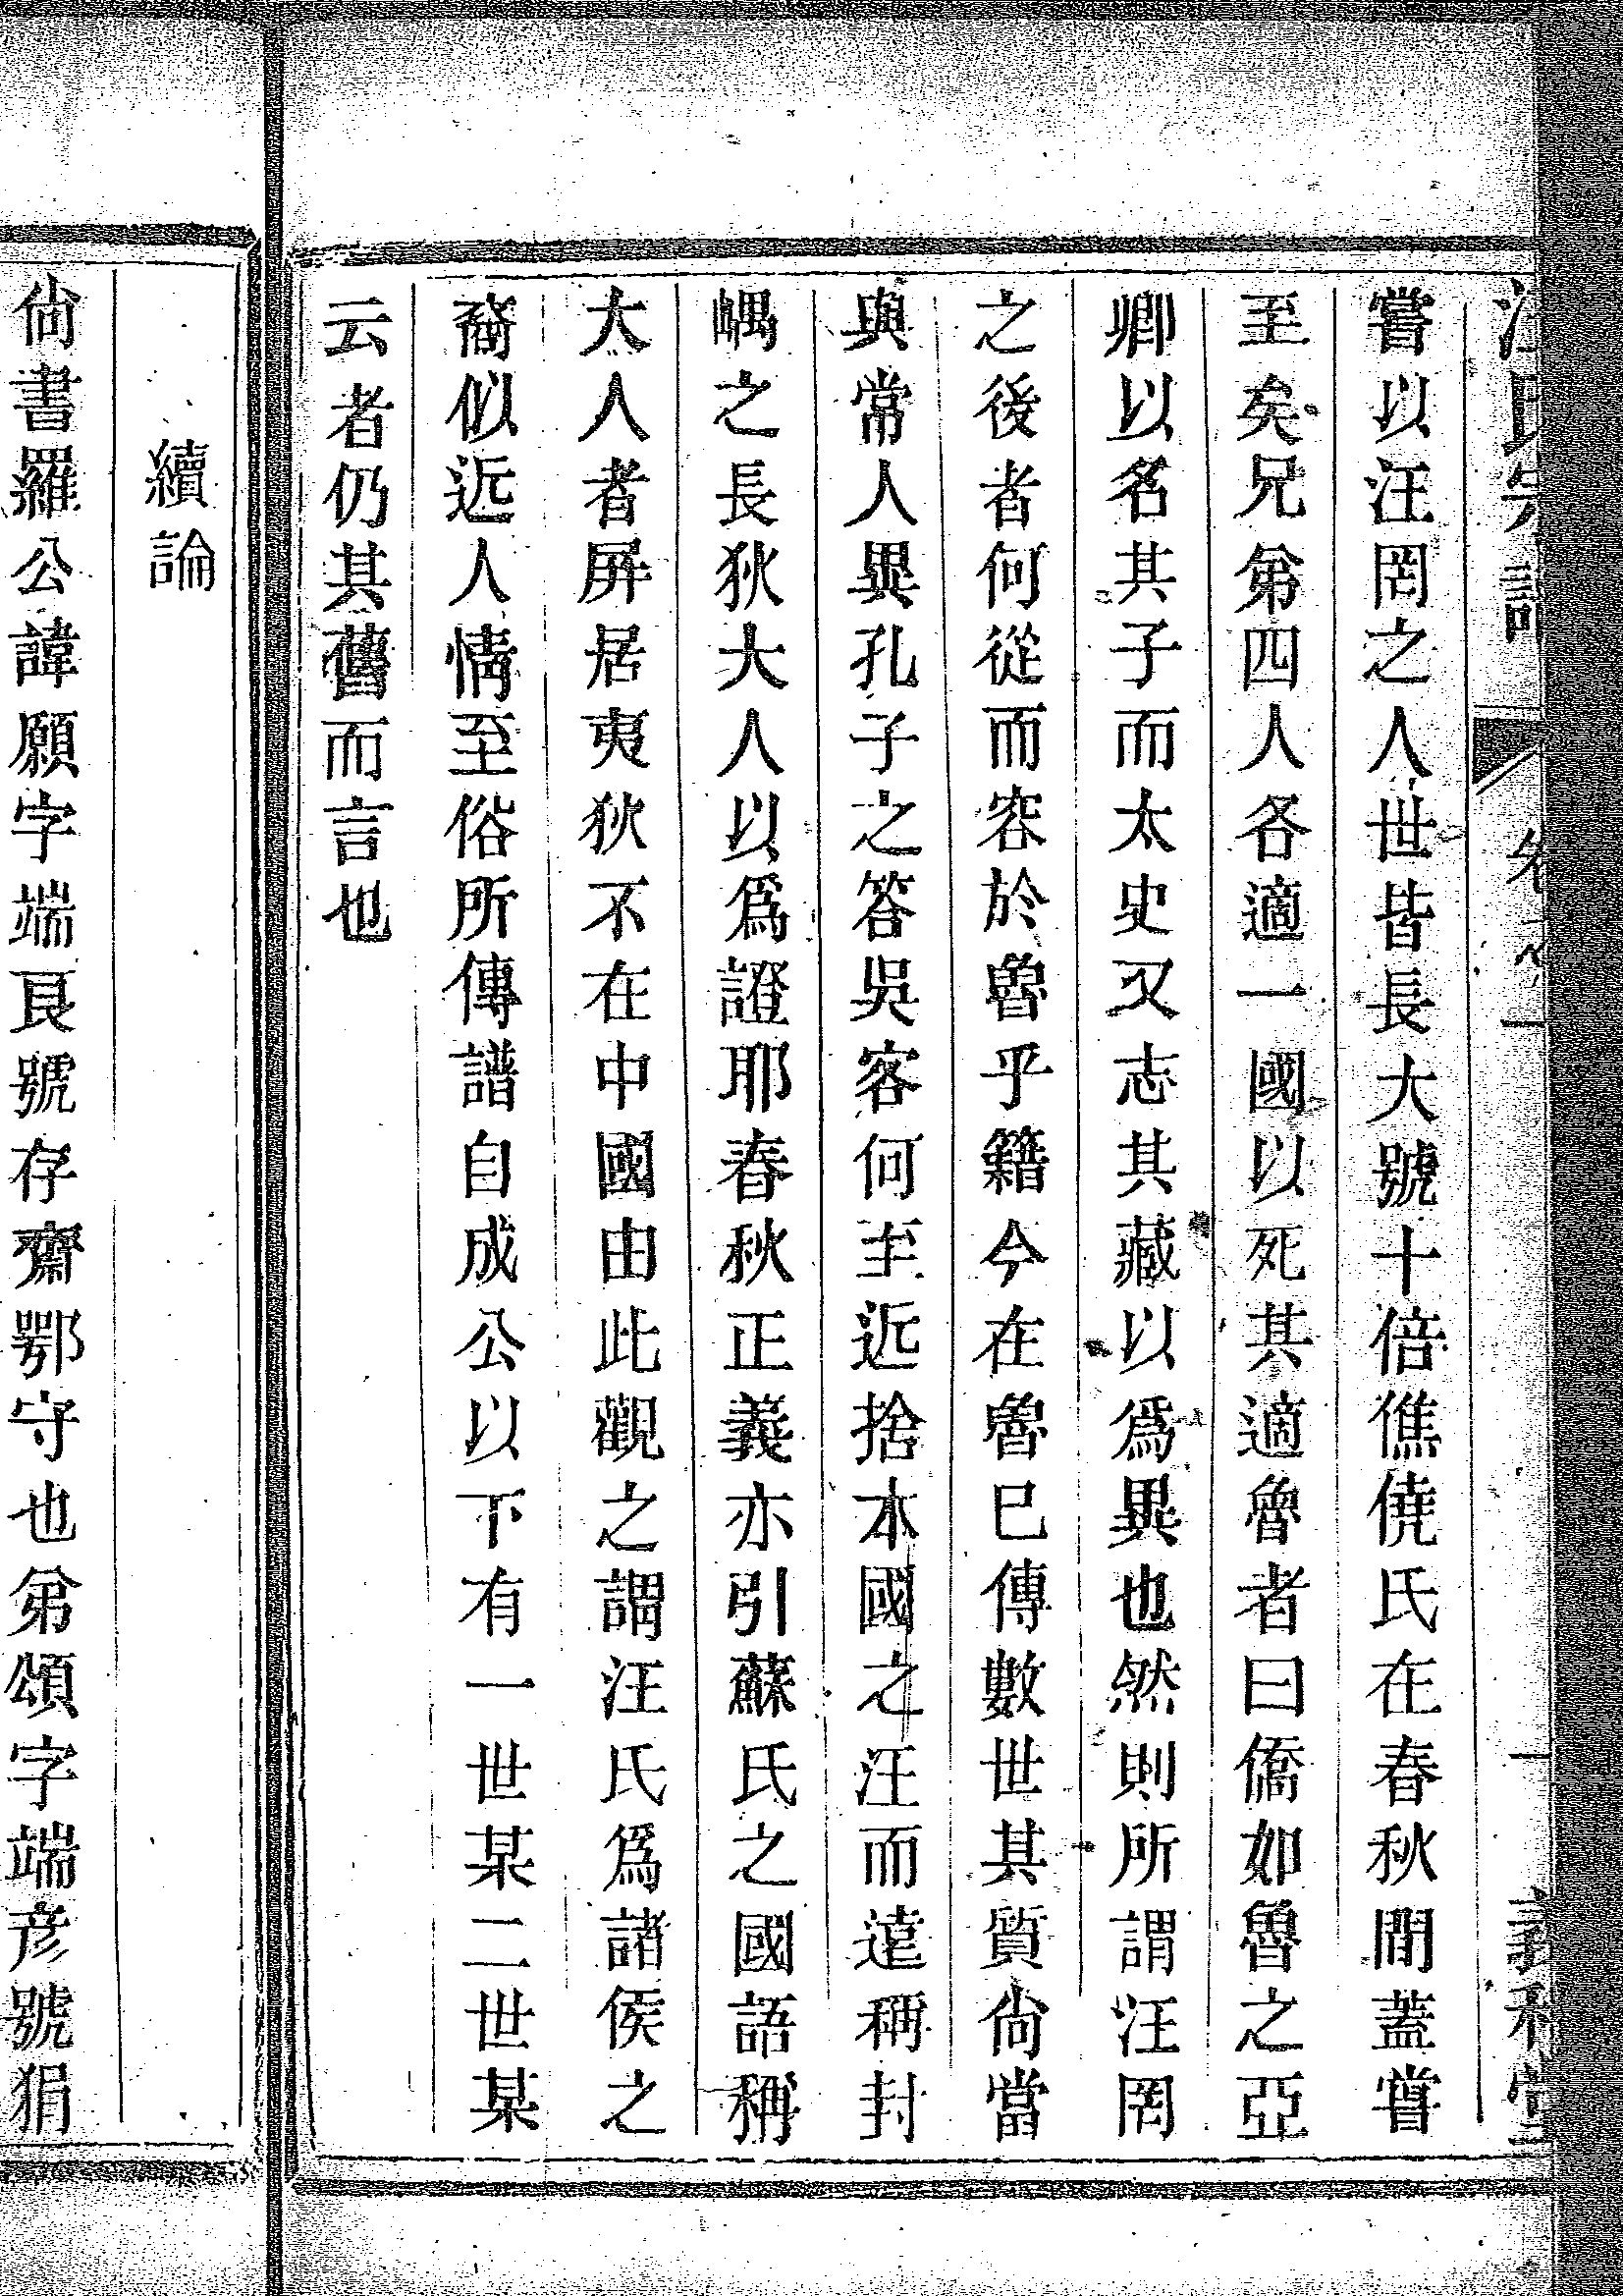 嘗以汪罔之人世皆長大號十倍僬僥氏在春秋間蓋嘗
至矣兄弟四人各適一國以死其適魯者曰僑如魯之亞
卿以名其子而太史又志其藏以爲異也然則所謂汪罔
之後者何從而容於魯乎籍今在魯已傳數世其質尙當
與常人異孔子之答吳客何至近捨本國之汪而遠稱封
嵎之長狄大人以爲證耶春秋正義亦引蘇氏之國語稱
大人者屏居夷狄不在中國由此觀之謂汪氏爲諸侯之
裔似近人情至俗所傳譜自成公以下有一世某二世某
云者仍其舊而言也
續論
尙書羅公諱願字端良號存齋鄂守也弟頌字端彥號狷